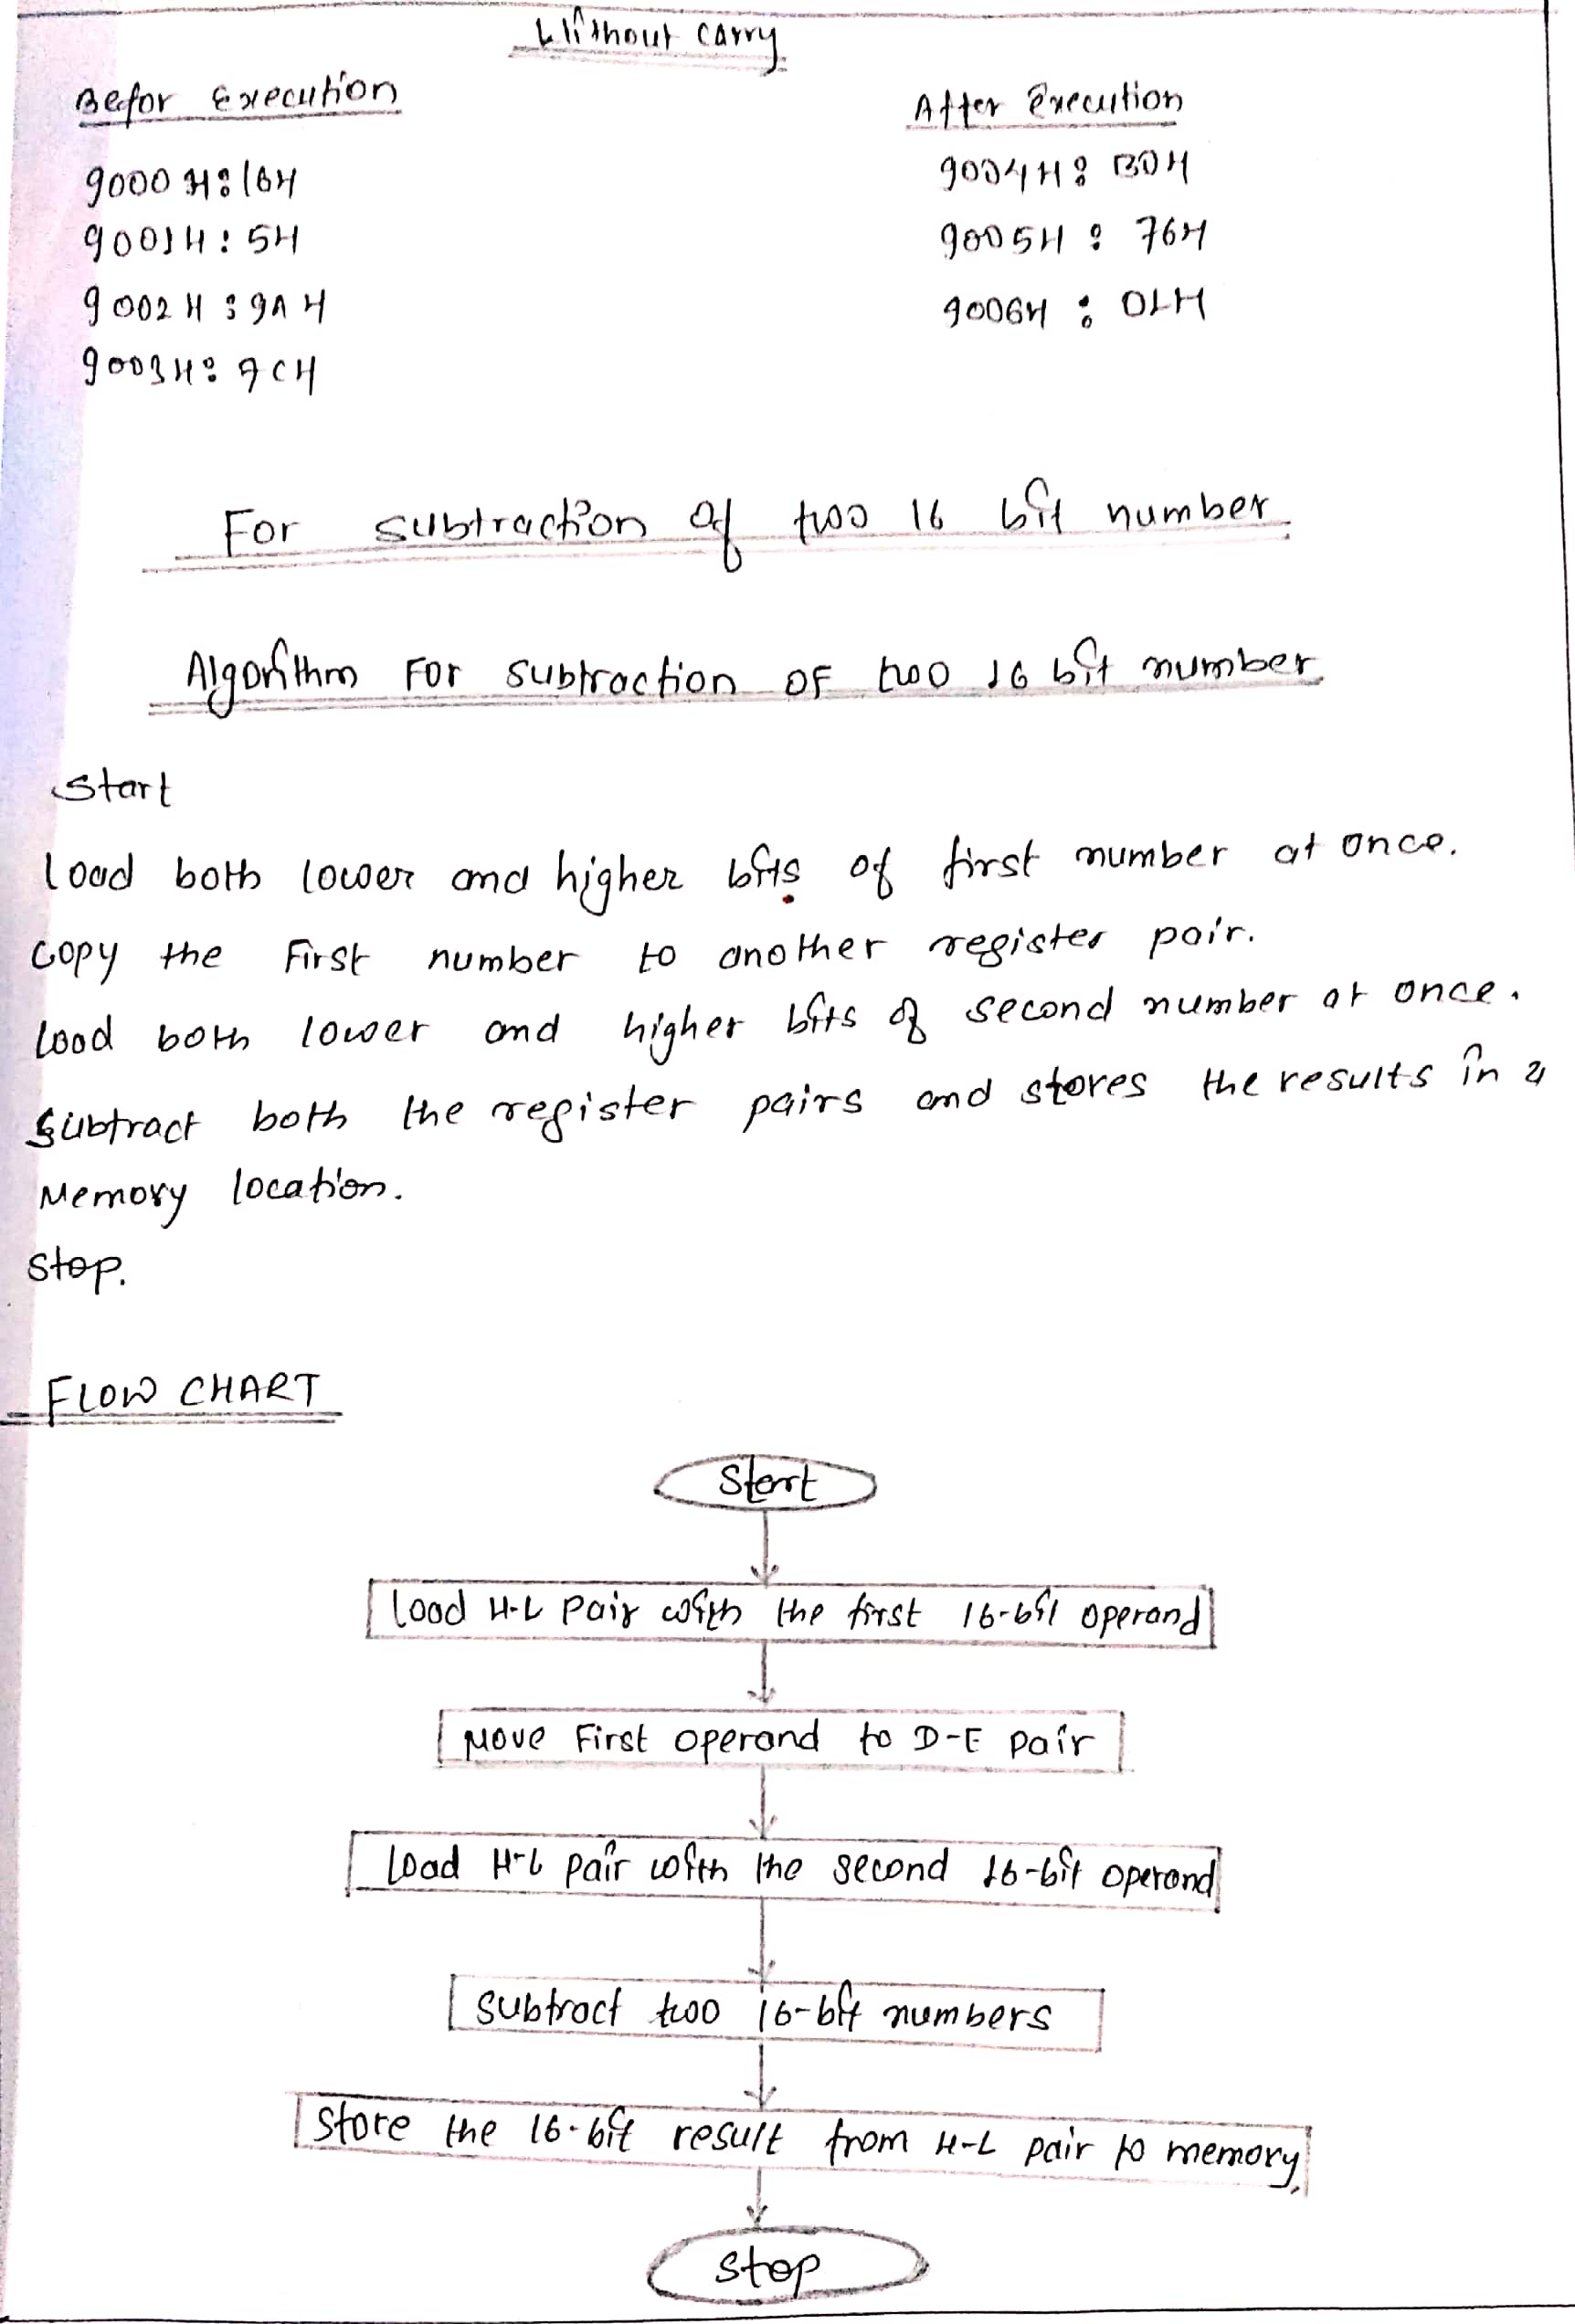 Without carry
Befor Execution
9000H: 16H
9001H: 5H
9002H: 9AH
9003H: 7CH
After Execution
9004H: B0H
9005H: 76H
9006H: 01H
For subtraction of two 16 bit number
Algorithm For subtraction OF two 16 bit number
Start
load both lower and higher bits of first number at once.
Copy the First number to another register pair.
load both lower and higher bits of second number at once.
Subtract both the register pairs and stores the results in a
Memory location.
Stop.
FLOW CHART
Start
load H-L pair with the first 16-bit operand
Move First operand to D-E pair
load H-L pair with the second 16-bit operand
subtract two 16-bit numbers
store the 16-bit result from H-L pair to memory
Stop